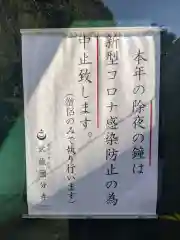 本年の除夜の鐘は
新型コロナ感染防止の為
中止致します。
(僧侶のみで執り行います)
武蔵国分寺